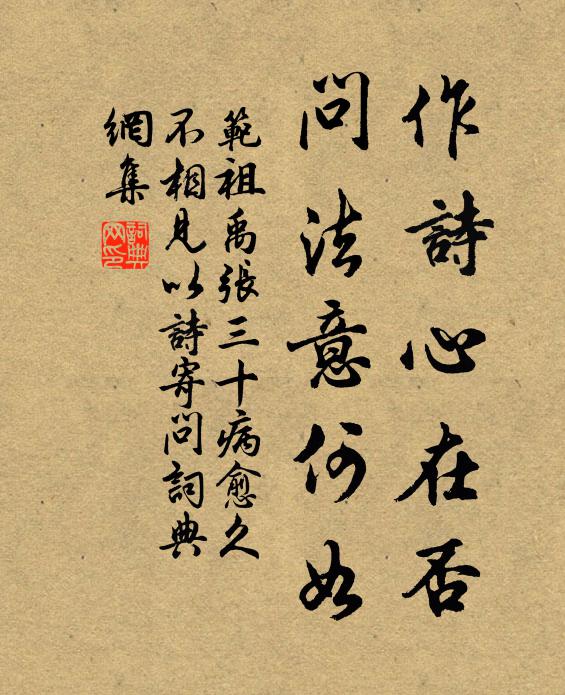 作詩心在否
問法意何如
範祖禹張三十病愈久
不相見以詩寄問詞典
網集
詞典
网印